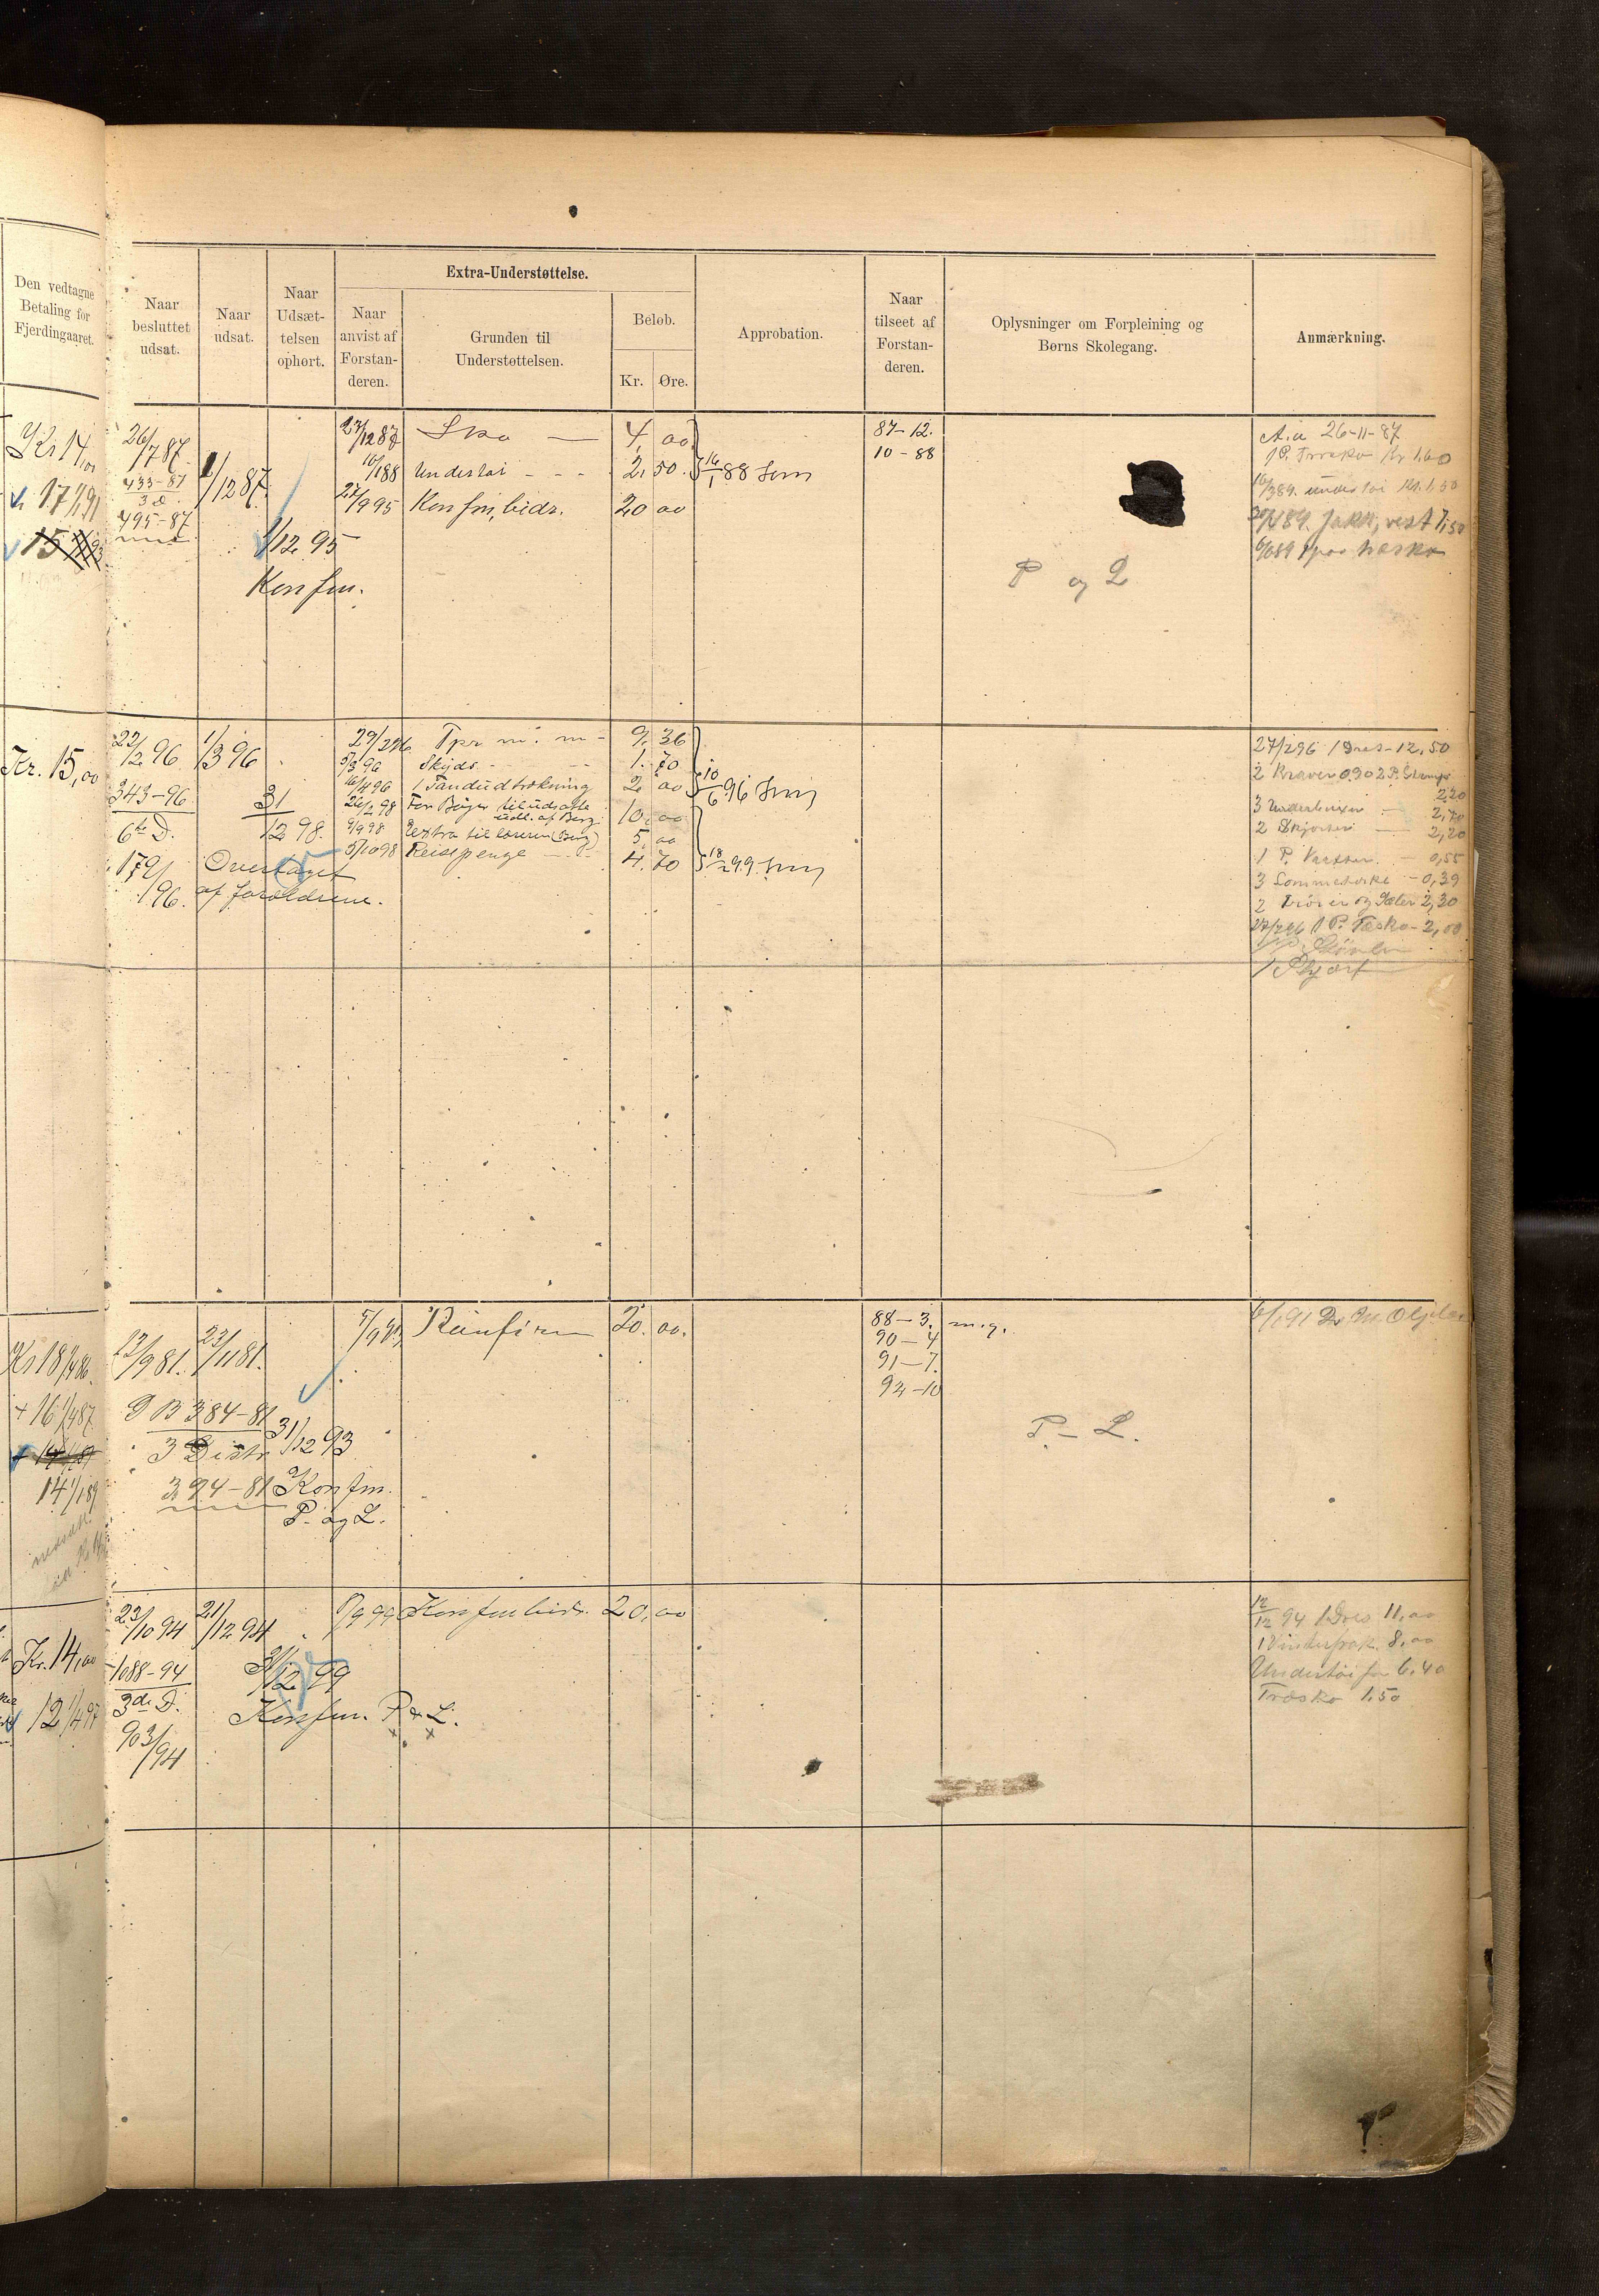 Den vedtagne
Betaling for
Fjerdingaaret.
Naar
besluttet
udsat.
Naar
udsat.
Naar
Udsæt-
telsen
ophørt.
Extra-Understøttelse.
Naar
anvist af
Forstan-
deren.
Grunden til
Understøttelsen.
Beløb.
Kr. Øre.
Approbation.
Naar
tilseet af
Forstan-
deren.
Oplysninger om Forpleining og
Børns Skolegang.
Anmærkning.
Kr 14,00
17 1/1 91
15
26/7 87.
433-87
3 d
495-87
1/12 87.
1/12 95
Konfm.
27/12 87 Sko — 4, 00
16/1 88 Undertøi - - - 2. 50.
27/9 95 Konfm, bidr. 20 00
16/1 88
87-12.
10-88
P og L
A.a 26-11-87
1 P. Træsko Kr 1.60
undertøi Kr. 1,50
Jakk, vest 7,50
Kr. 15,00
22/2 96
343-96
6te D.
179/96.
1/3 96
31/12 98.
Overtaget
af forældrene.
29/2 96 Tpr m. m - 9, 36
5/3 96 Skyds - - - 1. 70
16/4 96 1 Tandudtrækning 2, 00
26/2 98 For Bøger til udsatte 10, 00
udl. af Berg.
9/9 98 Extra til læreren (Berg) 5, 00
5/10 98 Reisepenge - - 4. 70
10/6 96
18/2 99
27/2 96 1 Dres - 12,50
2 Kraver 0.30 2 P. Strømper
2,20
3 Underbuxer — 2,70
2 Skjorter — 2,20
1 P. Vaatter. - 0,55
3 Lommetørkl - 0,39
2 Trøier og 2,30
27/2 96 1 P. Træsko - 2,00
Kr 18 1/4 86.
+ 16 1/4 87
14 1/1 89
13/9 81.
23/11 81.
P B 384-81
3 Distr
394-81
31/12 93
Konfm.
P. og L.
5/9 93 Konfirm 20. 00.
88-3. m.g.
90-4
91-7.
92-10
P. - L.
Kr. 14,00
12 1/4 97
23/10 94
1088-94
3de D.
903/94
21/12 94
31/12 99
Konfm. P & L.
8/9 99 Konfm bidr. 20, 00
12/12 94 1 Dres 11,00
1 Vinterfrak. 8,00
Undertøi for 6,40
Træsko 1,50